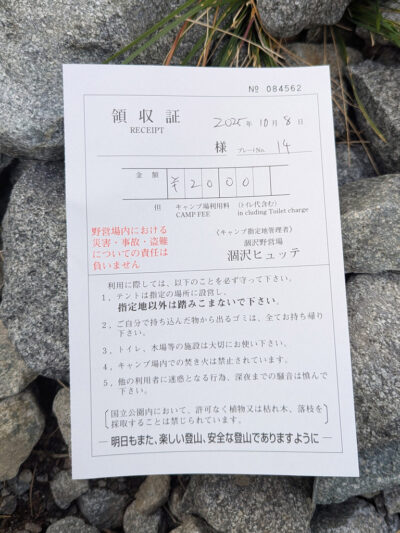 № 084562
領収証
RECEIPT
2025年 10月 8日
様 プレートNo. 14
金額 ¥2000
但 キャンプ場利用料 (トイレ代含む)
CAMP FEE in cluding Toilet charge
野営場内における
災害・事故・盗難
についての責任は
負いません
《キャンプ指定地管理者》
涸沢野営場
涸沢ヒュッテ
利用に際しては、以下のことを必ず守って下さい。
1，テントは指定の場所に設営し、
指定地以外は踏みこまないで下さい。
2，ご自分で持ち込んだ物から出るゴミは、全てお持ち帰り
下さい。
3，トイレ、水場等の施設は大切にお使い下さい。
4，キャンプ場内での焚き火は禁止されています。
5，他の利用者に迷惑となる行為、深夜までの騒音は慎んで
下さい。
国立公園内において、許可なく植物又は枯れ木、落枝を
採取することは禁じられています。
―明日もまた、楽しい登山、安全な登山でありますように―